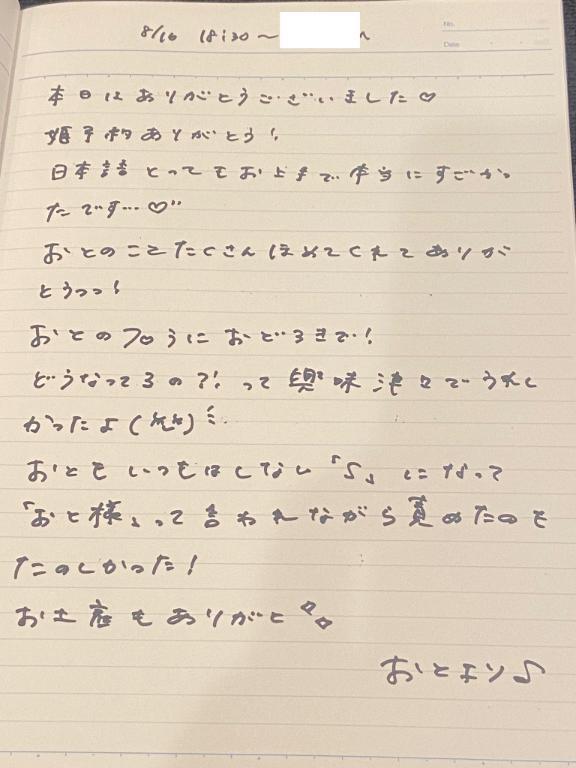 8/10 18:30〜
No.
Date
本日はありがとうございました♡
姫予約ありがとう!
日本語とってもお上手で本当にすごかっ
たです…♡"
おとのことたくさんほめてくれてありが
とうっっ!
おとのフロうにおどろきで!
どうなってるの?!って興味津々でうれし
かったよ(笑)
おともいつもはしない「S」になって
「おと様」って言われながら責めたのも
たのしかった!
お土産もありがと
おとより♪